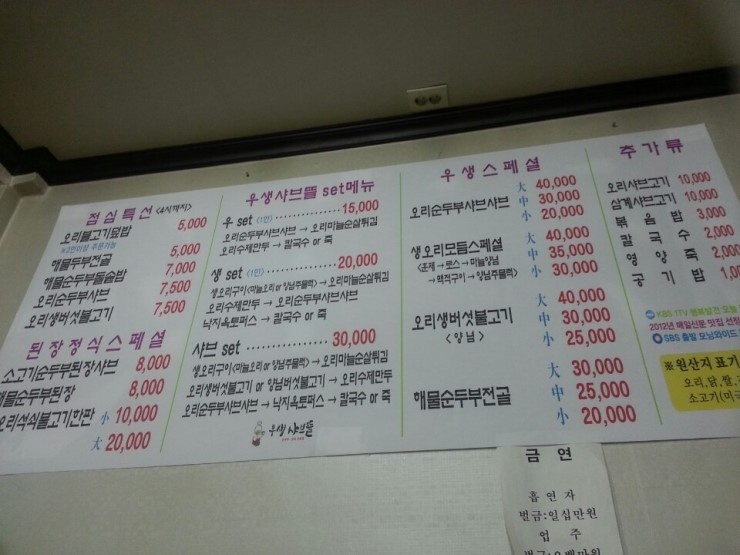 점심특선 <4시까지>
오리불고기덮밥 5,000
*2인이상 주문가능
해물두부전골 5,000
해물순두부돌솥밥 7,000
오리순두부샤브 7,500
오리생버섯불고기 7,500
된장정식스페셜
소고기순두부된장샤브 8,000
해물순두부된장 8,000
오리석쇠불고기한판 小 10,000
大 20,000
우생샤브뜰 set메뉴
우 set (1인) 15,000
오리순두부샤브샤브 → 오리마늘순살튀김
오리수제만두 → 칼국수 or 죽
생 set (1인) 20,000
생오리구이(마늘오리 or 양념주물럭) → 오리마늘순살튀김
오리수제만두 → 오리순두부샤브샤브
낙지육토퍼스 → 칼국수 or 죽
샤브 set 30,000
생오리구이(마늘오리 or 양념주물럭) → 오리마늘순살튀김
오리생버섯불고기 or 양념버섯불고기 → 오리수제만두
오리순두부샤브샤브 → 낙지육토퍼스 → 칼국수 or 죽
우생샤브뜰
우생스페셜
오리순두부샤브샤브
大 40,000
中 30,000
小 20,000
생오리모듬스페셜
<훈제 → 로스 → 마늘양념
→ 떡떡구이 → 양념주물럭>
大 40,000
中 35,000
小 30,000
오리생버섯불고기
<양념>
大 40,000
中 30,000
小 25,000
해물순두부전골
大 30,000
中 25,000
小 20,000
추가류
오리샤브고기 10,000
삼계샤브고기 10,000
볶음밥 3,000
칼국수 2,000
영양죽 2,000
공기밥 1,0
KBS 1TV 행복발견 오늘
2012년 매일신문 맛집 선정
SBS 출발 모닝와이드
※원산지 표기
오리,닭,쌀,
소고기(미국
금연
흡연자
벌금:일십만원
업주